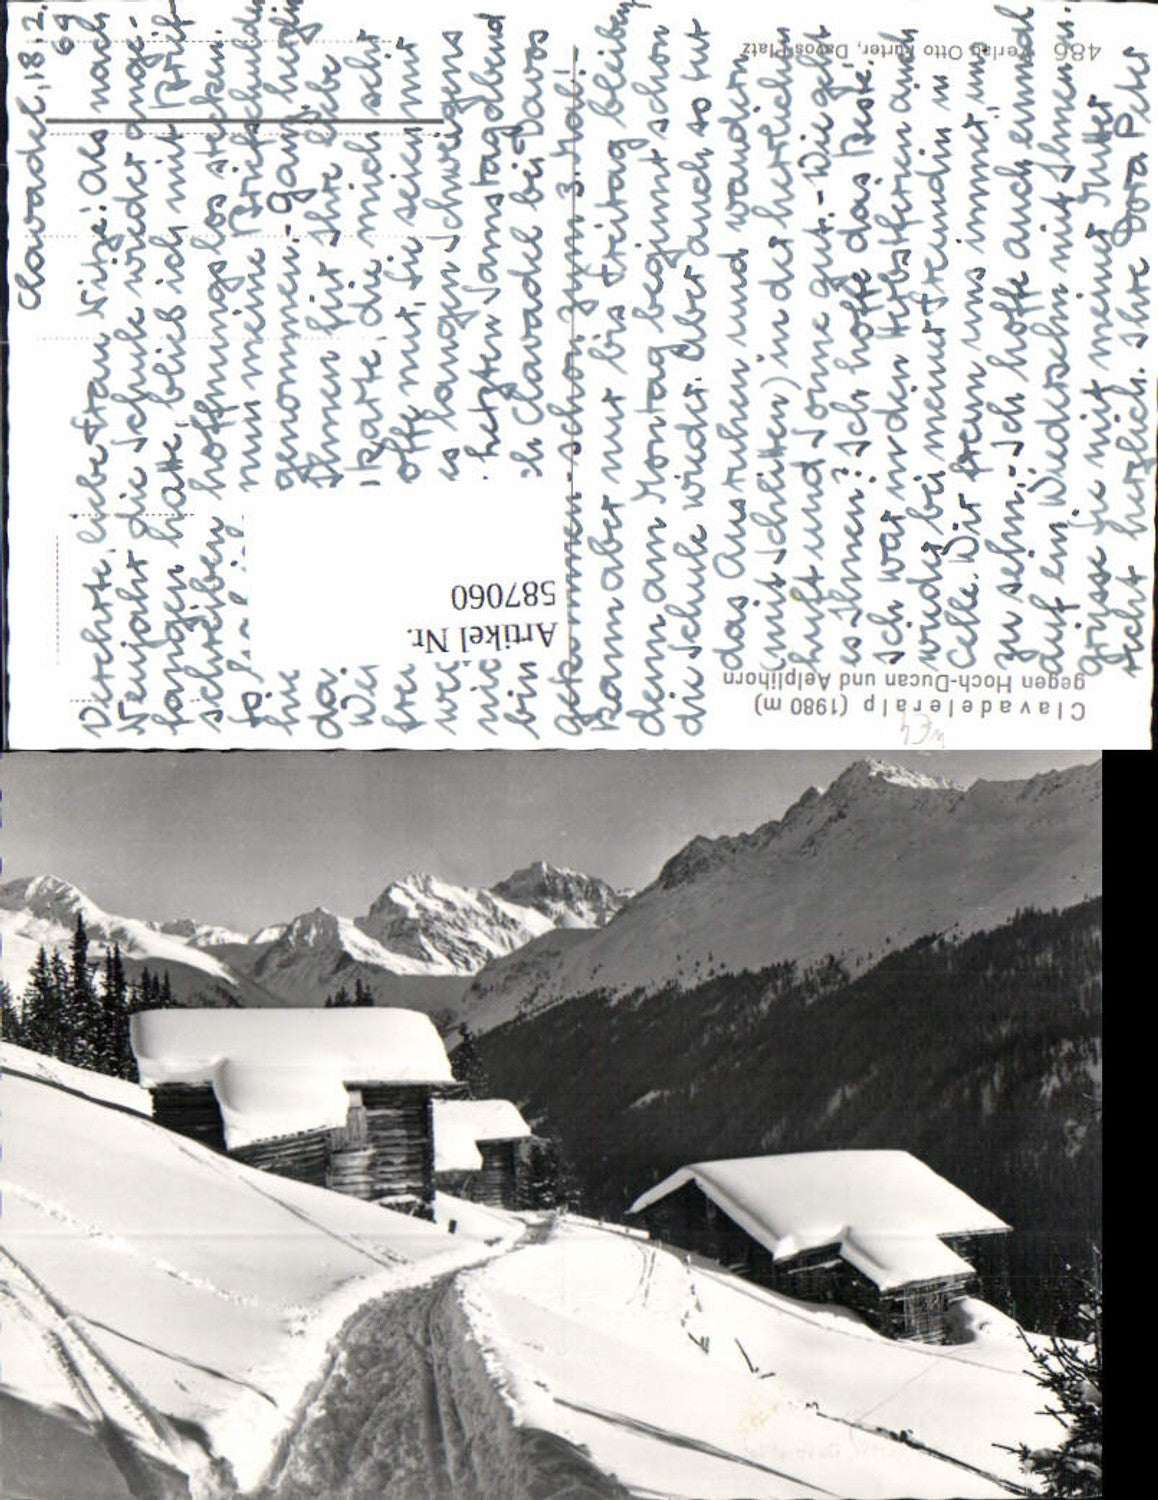 Clavadel, 18.2.
69
Verehrte, liebe Frau Nitze! Als nach
Neujahr die Schule wieder ange-
fangen hatte, blieb ich mit Brief-
schreiben hoffnungslos stecken.
nun meine Briefschulden
genommen. - Ganz
Ihnen für Ihre liebe
Karte, die mich sehr
nur, Sie seien nur
langen Schweigens
herzten Samstagabend
bin ich Clavadel bei Davos
gekommen - schon zum 3. Mal! -
Kann aber nur bis Freitag bleiben,
denn am Montag beginnt schon
die Schule wieder. Aber auch so tut
das Ausruhen und wandern
(mit Schlitten) in der herrlichen
Luft und Sonne gut. - Wie geht
es Ihnen? Ich hoffe das Beste.
Ich war in den Herbstferien auch
wieder bei meiner Freundin in
Celle. Wir freun uns immer, uns
zu sehn. - Ich hoffe auch einmal
auf ein Wiedersehn mit Ihnen.
Grüsse Sie mit meiner Mutter
recht herzlich. Ihre Dora Peter
Artikel Nr.
587060
Clavadeleralp (1980 m)
gegen Hoch-Ducan und Aelplihorn
486 Verlag Otto Furter, Davos-Platz